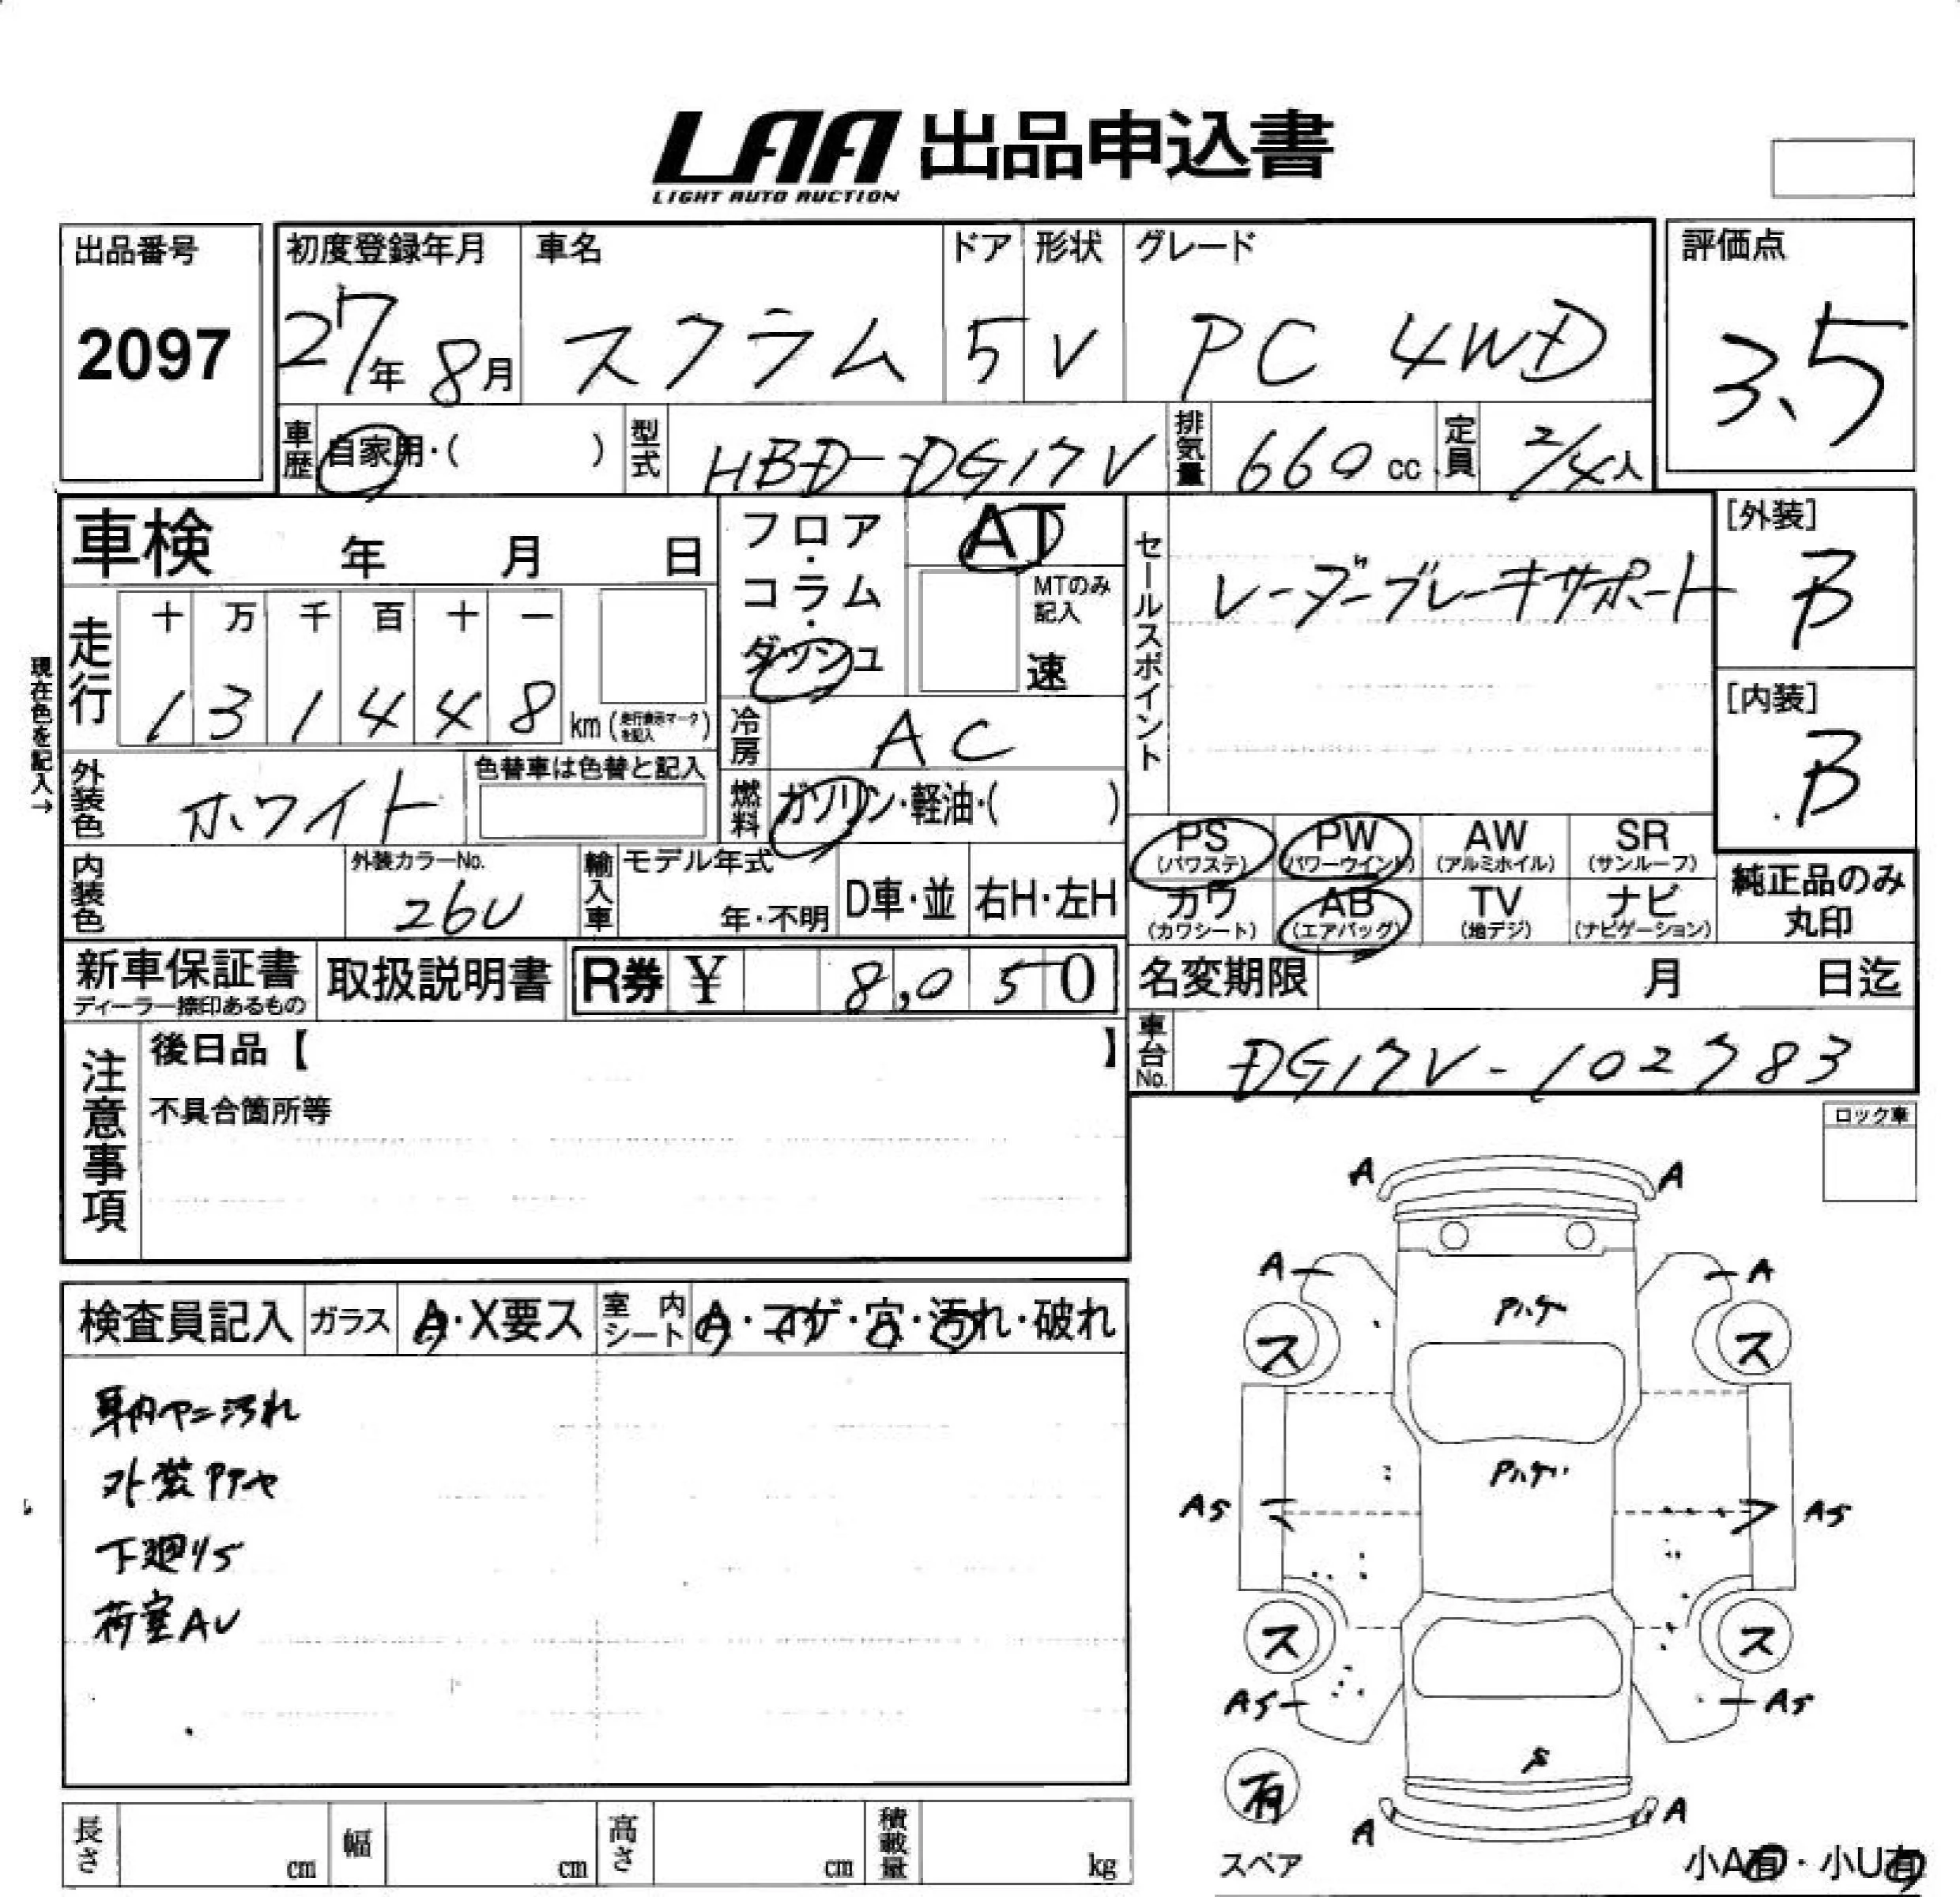 LAA 出品申込書
LIGHT AUTO AUCTION
出品番号
2097
初度登録年月
27年 8月
車名
スクラム
ドア
5
形状
V
グレード
PC 4WD
評価点
3.5
車歴
自家用・( )
型式
HBD-DG17V
排気量
660 cc
定員
2/4人
車検 年 月 日
フロア・コラム・ダッシュ
AT
MTのみ記入
速
セールスポイント
レーダーブレーキサポート
[外装]
B
[内装]
B
現在色を記入→
走行
十 万 千 百 十 一
1 3 1 4 4 8 km (走行表示マークを記入)
冷房
AC
外装色
ホワイト
色替車は色替と記入
燃料
ガソリン・軽油・( )
PS (パワステ)
PW (パワーウインド)
AW (アルミホイル)
SR (サンルーフ)
カワ (カワシート)
AB (エアバッグ)
TV (地デジ)
ナビ (ナビゲーション)
純正品のみ丸印
内装色
外装カラーNo.
26U
輸入車
モデル年式
年・不明
D車・並
右H・左H
新車保証書
ディーラー捺印あるもの
取扱説明書
R券 ¥ 8,050
名変期限 月 日迄
車台No.
DG17V-102783
注意事項
後日品【 】
不具合箇所等
ロック車
検査員記入
ガラス
A・X要ス
室内シート
A・コゲ・穴・汚れ・破れ
車内ヤニ汚れ
外装Pアセ
下廻りS
荷室AU
A A
A A
Pハゲ
ス ス
Pハゲ
AS AS
ス ス
AS AS
S
有
スペア
A A
小A有・小U有
長さ cm
幅 cm
高さ cm
積載量 kg